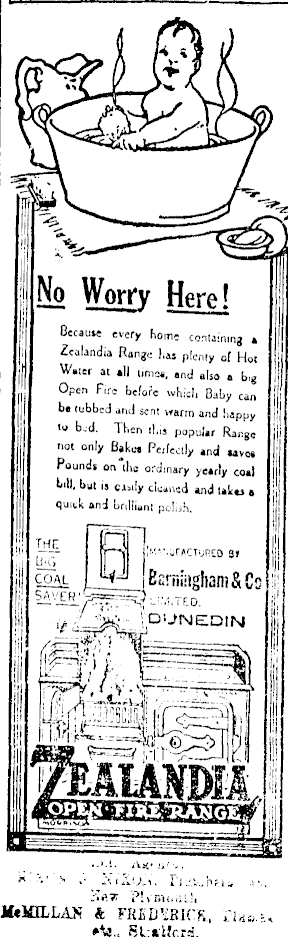 No Worry Here!
Because every home containing a
Zealandia Range has plenty of Hot
Water at all times, and also a big
Open Fire before which Baby can
be tubbed and sent warm and happy
to bed. Then this popular Range
not only Bakes Perfectly and saves
Pounds on the ordinary yearly coal
bill, but is easily cleaned and takes a
quick and brilliant polish.
THE
BIG
COAL
SAVER
MANUFACTURED BY
Barningham & Co
LIMITED.
DUNEDIN
ZEALANDIA
OPEN FIRE RANGE
Agents
& NIXON, Plumbers,
New Plymouth
McMILLAN & FREDRICK,
etc., Stratford.